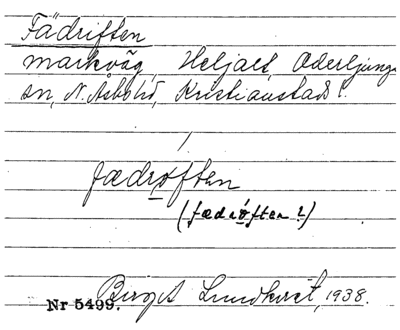 Fädriften
markväg, Heljalt, Oderljunga
sn, N. Åsbohd, Kristianstads l.
fædrøften
(fædrǿften?)
Birgit Lundkvist, 1938.
Nr 5499.